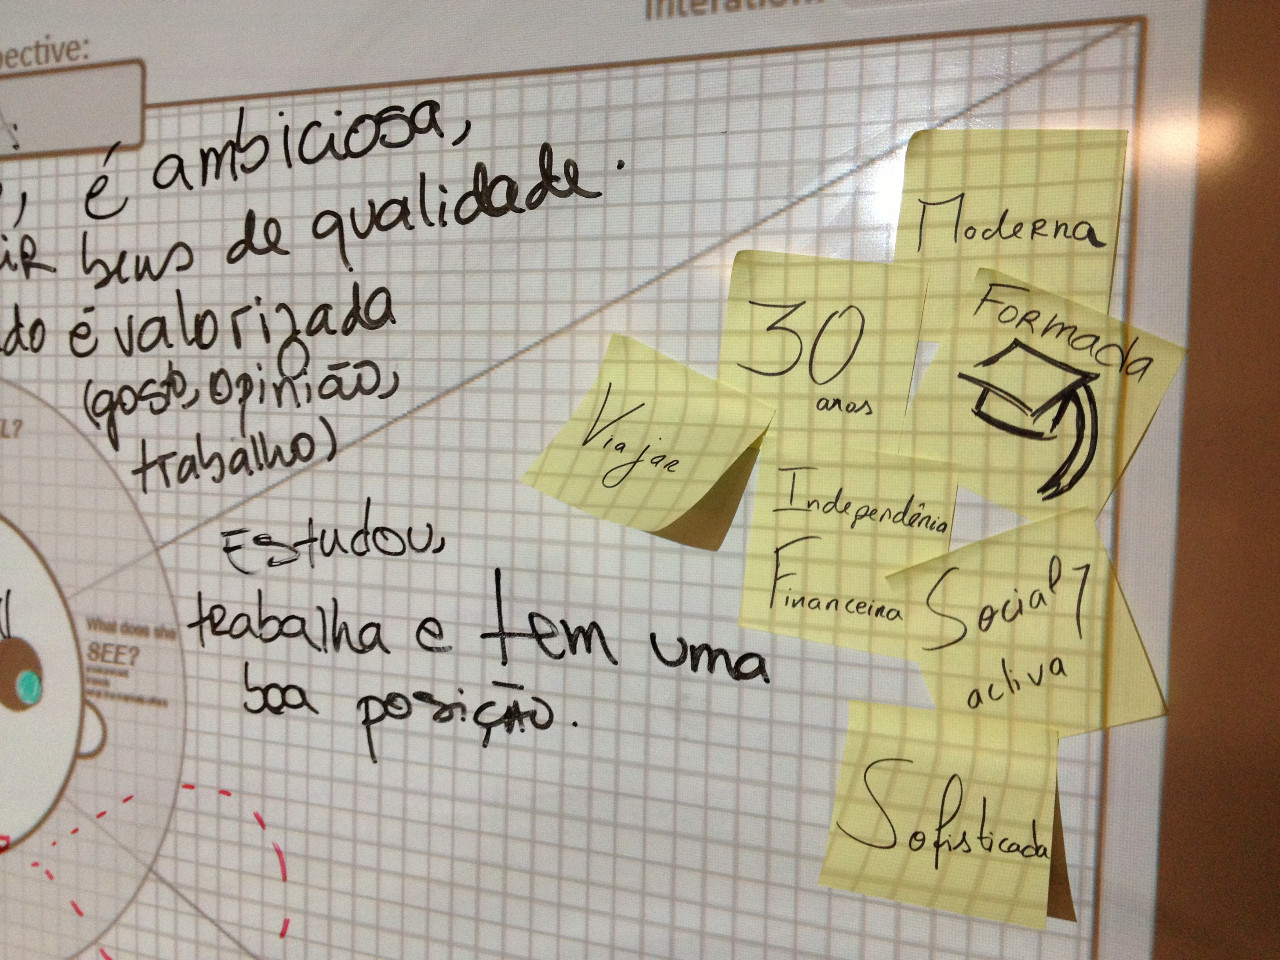 pective:
Interation:
, é ambiciosa,
iR bens de qualidade.
do é valorizada
(gosto, opinião,
trabalho)
L?
Estudou,
trabalha e tem uma
boa posição.
What does she
SEE?
Moderna
30
anos
Formada
Viajar
Independênia
Financeira
Social
activa
Sofisticada